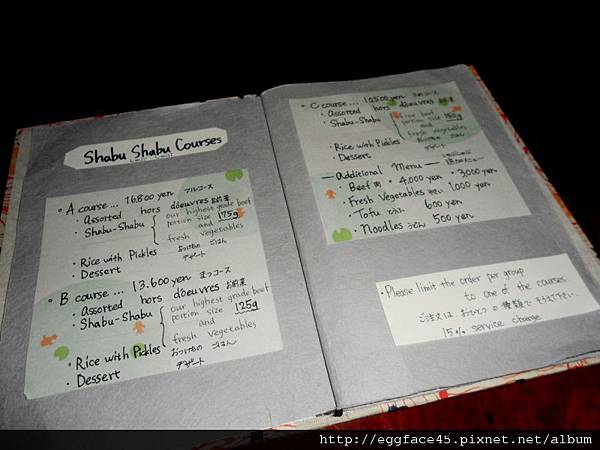 Shabu Shabu Courses
・A course ... 16,800 yen フルコース
・Assorted hors d'oeuvres お前菜
・Shabu-Shabu
our highest grade beef
portion size 175g
and
fresh vegetables
・Rice with Pickles おつけもの ごはん
・Dessert デザート
・B course ... 13,600 yen まつコース
・Assorted hors d'oeuvres お前菜
・Shabu-Shabu
our highest grade beef
portion size 125g
and
fresh vegetables
・Rice with Pickles おつけもの ごはん
・Dessert デザート
・C course ... 10,500 yen
・Assorted hors d'oeuvres お前菜
・Shabu-Shabu
beef
portion size 150g
fresh vegetables
・Rice with Pickles
・Dessert デザート
Additional Menu
・Beef 肉 ・4,000 yen ・3,000 yen
・Fresh Vegetables 1,000 yen
・Tofu とうふ 600 yen
・Noodles うどん 500 yen
・Please limit the order per group
to one of the courses.
ご注文は、おひとつの種類で
15% service charge
http://eggface45.pixnet.net/album